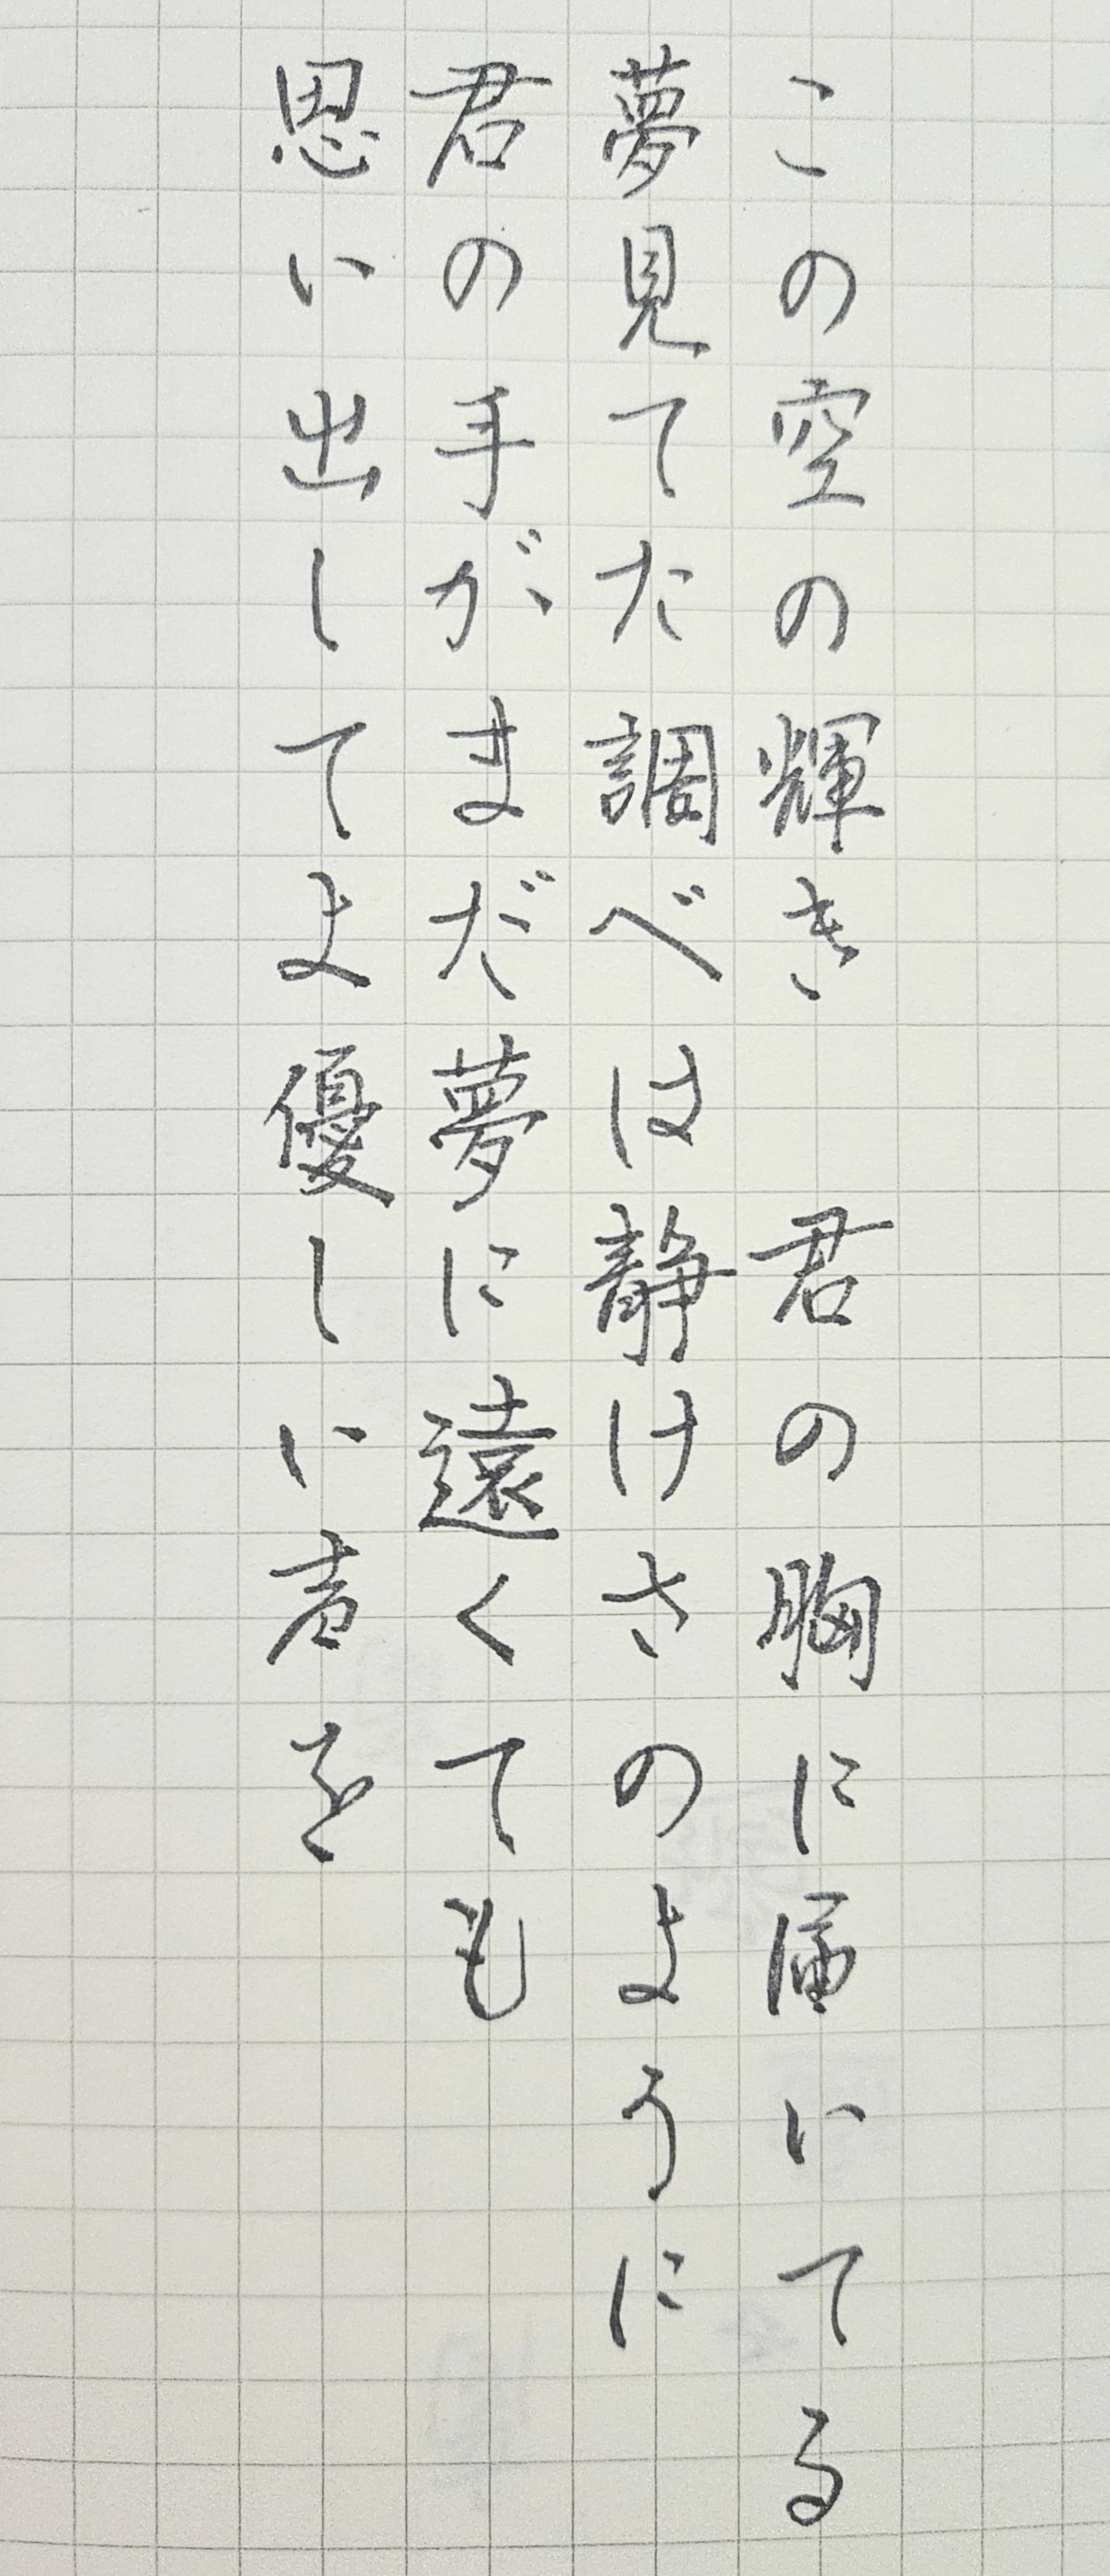 この空の輝き　君の胸に届いてる
夢見てた調べは静けさのように
君の手がまだ夢に遠くても
思い出してよ優しい声を